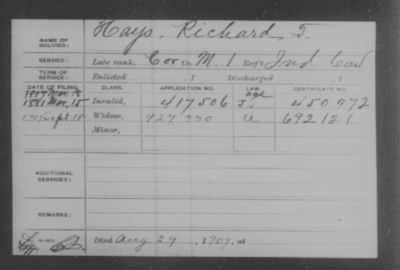 Hays, Richard T.
NAME OF SOLDIER:
SERVICE: Late rank, Cor Co. M, 1 Reg't Ind Cav
TERM OF SERVICE: Enlisted , 1 Discharged , 1
DATE OF FILING. CLASS. APPLICATION NO. LAW. CERTIFICATE NO.
1907 Mar. age
1881 Mar. 15 Invalid, 417506 450972
1907 Sept 18 Widow, 927330 692121
Minor,
ADDITIONAL SERVICES:
REMARKS:
Died Aug 29, 1907, at